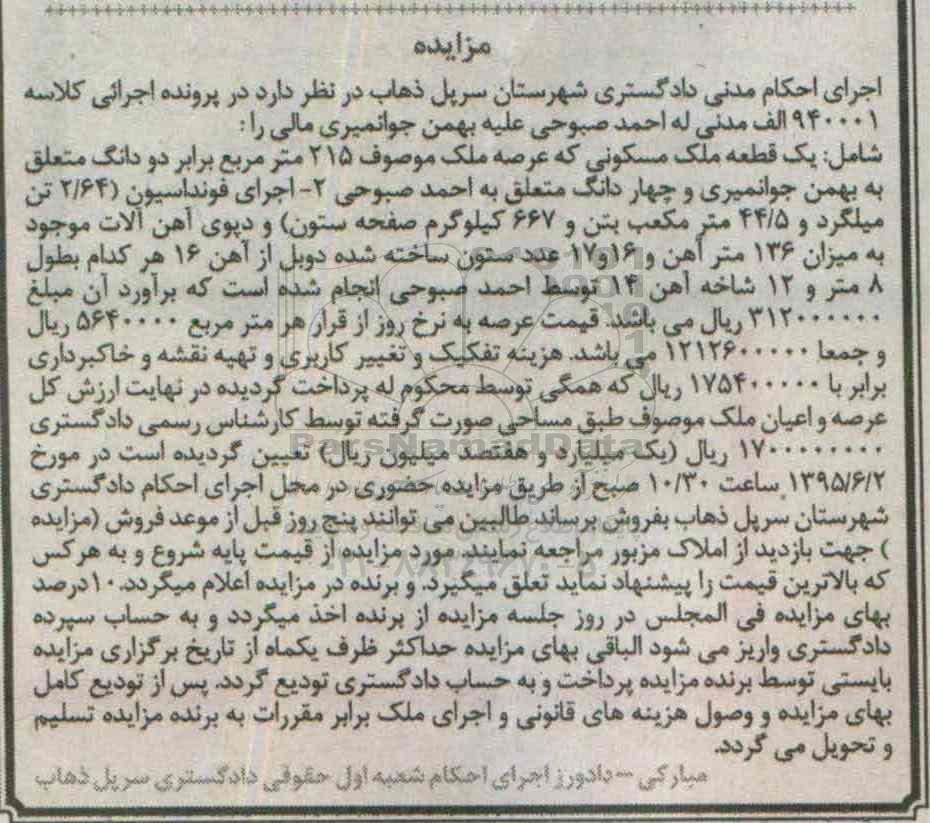 مزایده
اجرای احکام مدنی دادگستری شهرستان سرپل ذهاب در نظر دارد در پرونده اجرائی کلاسه
۹۴۰۰۰۱ الف مدنی له احمد صبوحی علیه بهمن جوانمیری مالی را:
شامل: یک قطعه ملک مسکونی که عرصه ملک موصوف ۲۱۵ متر مربع برابر دو دانگ متعلق
به بهمن جوانمیری و چهار دانگ متعلق به احمد صبوحی ۲- اجرای فونداسیون (۲/۶۴ تن
میلگرد و ۴۴/۵ متر مکعب بتن و ۶۶۷ کیلوگرم صفحه ستون) و دپوی آهن آلات موجود
به میزان ۱۳۶ متر آهن و ۱۶و۱۷ عدد ستون ساخته شده دوبل از آهن ۱۶ هر کدام بطول
۸ متر و ۱۲ شاخه آهن ۱۴ توسط احمد صبوحی انجام شده است که برآورد آن مبلغ
۳۱۲۰۰۰۰۰۰ ریال می باشد. قیمت عرصه به نرخ روز از قرار هر متر مربع ۵۶۴۰۰۰۰ ریال
و جمعا ۱۲۱۲۶۰۰۰۰۰ می باشد. هزینه تفکیک و تغییر کاربری و تهیه نقشه و خاکبرداری
برابر با ۱۷۵۴۰۰۰۰۰ ریال که همگی توسط محکوم له پرداخت گردیده در نهایت ارزش کل
عرصه و اعیان ملک موصوف طبق مساحی صورت گرفته توسط کارشناس رسمی دادگستری
۱۷۰۰۰۰۰۰۰۰ ریال (یک میلیارد و هفتصد میلیون ریال) تعیین گردیده است در مورخ
۱۳۹۵/۶/۲ ساعت ۱۰/۳۰ صبح از طریق مزایده حضوری در محل اجرای احکام دادگستری
شهرستان سرپل ذهاب بفروش برساند طالبین می توانند پنج روز قبل از موعد فروش (مزایده
) جهت بازدید از املاک مزبور مراجعه نمایند. مورد مزایده از قیمت پایه شروع و به هرکس
که بالاترین قیمت را پیشنهاد نماید تعلق میگیرد. و برنده در مزایده اعلام میگردد. ۱۰درصد
بهای مزایده فی المجلس در روز جلسه مزایده از برنده اخذ میگردد و به حساب سپرده
دادگستری واریز می شود الباقی بهای مزایده حداکثر ظرف یکماه از تاریخ برگزاری مزایده
بایستی توسط برنده مزایده پرداخت و به حساب دادگستری تودیع گردد. پس از تودیع کامل
بهای مزایده و وصول هزینه های قانونی و اجرای ملک برابر مقررات به برنده مزایده تسلیم
و تحویل می گردد.
مبارکی – دادورز اجرای احکام شعبه اول حقوقی دادگستری سرپل ذهاب
ParsNamadData